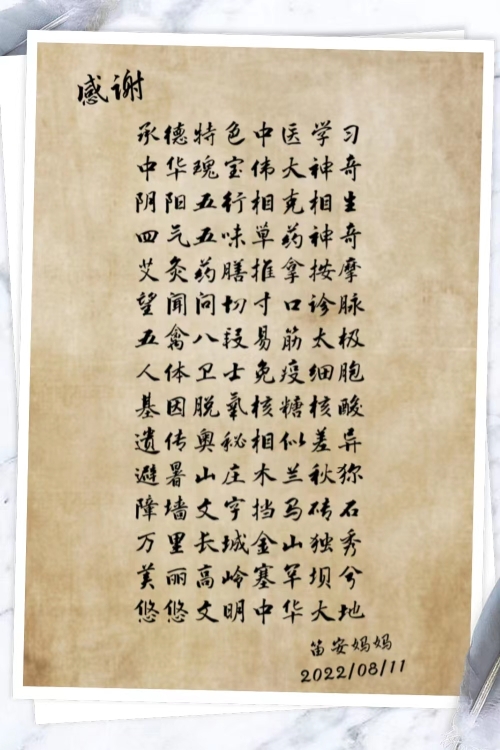 感谢
承德特色中医学习
中华瑰宝伟大神奇
阴阳五行相克相生
四气五味单药神奇
艾灸药膳推拿按摩
望闻问切寸口诊脉
五禽八段易筋太极
人体卫士免疫细胞
基因脱氧核糖核酸
遗传奥秘相似差异
避暑山庄木兰秋狝
障墙文字挡马砖石
万里长城金山独秀
美丽高岭塞罕坝兮
悠悠文明中华大地
笛安妈妈
2022/08/11